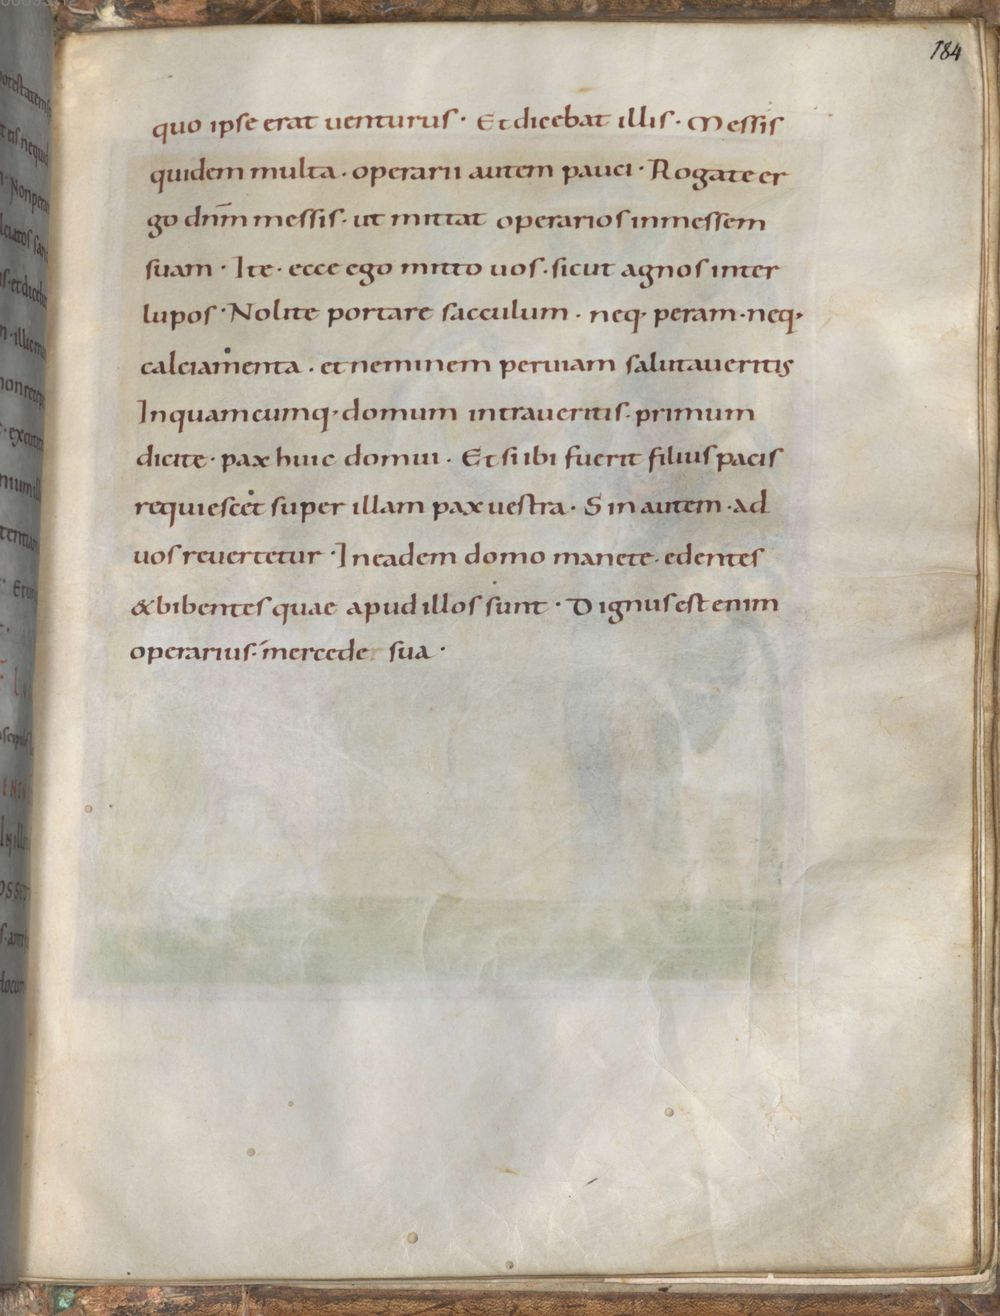 184
quo ipse erat uenturus· Et dicebat illis· Messis
quidem multa· operarii autem pauci· Rogate er
go dn̄m messis· ut mittat operarios in messem
suam· Ite· ecce ego mitto uos· sicut agnos inter
lupos· Nolite portare sacculum· neq· peram· neq·
calciamenta· et neminem per uiam salutaueritis
In quamcumq· domum intraueritis· primum
dicite· pax huic domui· Et si ibi fuerit filius pacis
requiescet super illam pax uestra· Sin autem· ad
uos reuertetur· In eadem domo manete· edentes
& bibentes quae apud illos sunt· Dignus est enim
operarius· mercede sua·